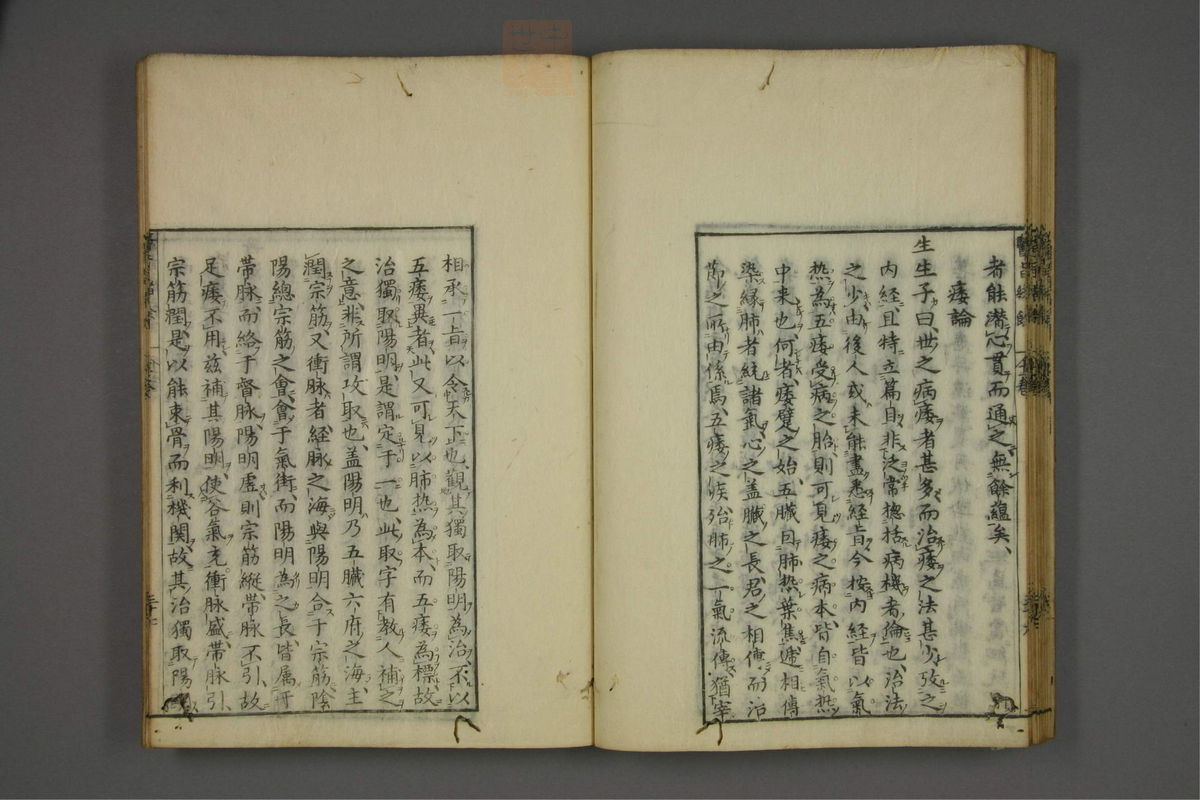 者能潜心貫而通之無餘蘊矣、
痿論
生生子曰、世之病痿者甚多而治痿之法甚少、攷之
内経、且特立篇目、非泛常摠括病機者倫也、治法
之少、由後人或未能盡悉経旨、今按内経皆以氣
熱為五痿受病之胎、則可見痿之病本、皆自氣熱
中来也、何者、痿躄之始、五臟因肺热葉焦、遞相傳
染、縁肺者統諸氣、心之盖、臟之長、君之相傅、而治
節之所由係焉、五痿之疾、殆肺之一氣流傳、猶宰
相承一旨以令天下也、觀其獨取陽明為治、不以
五痿異者、此又可見以肺热為本、而五痿為標、故
治獨取陽明、是謂定于一也、此取字有教人補之
之意、非所謂攻取也、盖陽明乃五臟六府之海、主
潤宗筋、又衝脉者、経脉之海、與陽明合于宗筋、陰
陽總宗筋之會、會于氣街、而陽明為之長、皆属于
帶脉、而絡于督脉、陽明虚則宗筋縱、帶脉不引、故
足痿不用、兹補其陽明、使谷氣充、衝脉盛、帶脉引、
宗筋潤、是以能束骨而利機関、故其治獨取陽